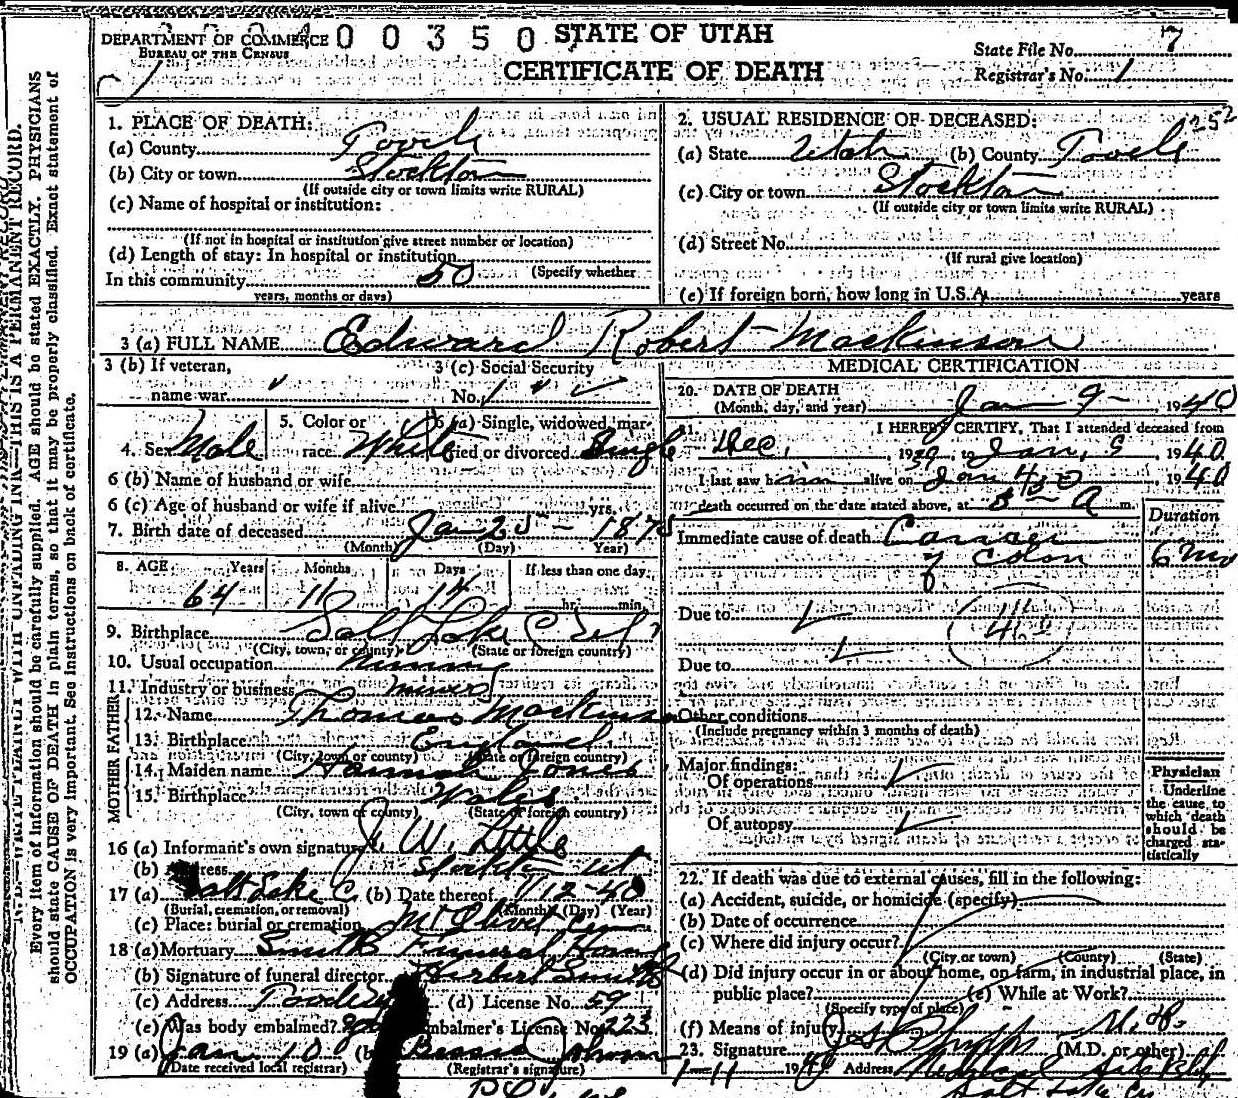 DEPARTMENT OF COMMERCE
BUREAU OF THE CENSUS
00350
STATE OF UTAH
CERTIFICATE OF DEATH
State File No. 7
Registrar's No. 1
THIS IS A PERMANENT RECORD.
Every item of information should be carefully supplied. AGE should be stated EXACTLY. PHYSICIANS
should state CAUSE OF DEATH in plain terms, so that it may be properly classified. Exact statement of
OCCUPATION is very important. See instructions on back of certificate.
1. PLACE OF DEATH:
(a) County Tooele
(b) City or town Stockton
(If outside city or town limits write RURAL)
(c) Name of hospital or institution:
(If not in hospital or institution give street number or location)
(d) Length of stay: In hospital or institution
(Specify whether
In this community 50
years, months or days)
2. USUAL RESIDENCE OF DECEASED: 252
(a) State Utah (b) County Tooele
(c) City or town Stockton
(If outside city or town limits write RURAL)
(d) Street No.
(If rural give location)
(e) If foreign born, how long in U.S.A. years
3 (a) FULL NAME Edward Robert Mackinson
3 (b) If veteran,
name war
3 (c) Social Security
No.
4. Sex Male
5. Color or
race White
6 (a) Single, widowed, mar-
ried or divorced Single
6 (b) Name of husband or wife
6 (c) Age of husband or wife if alive yrs.
7. Birth date of deceased Jan 25 - 1875
(Month) (Day) Year)
8. AGE: Years Months Days If less than one day
64 11 14 hr. min.
9. Birthplace Salt Lake C
(City, town, or county) (State or foreign country)
10. Usual occupation Mining
11. Industry or business mines
FATHER
12. Name Thomas Mackinson
13. Birthplace England
(City, town or county) (State or foreign country)
MOTHER
14. Maiden name Hannah Jones
15. Birthplace Wales
(City, town or county) (State or foreign country)
16 (a) Informant's own signature J. W. Little
(b) Address Stockton Ut
17 (a) Salt Lake C. (b) Date thereof 1/12-40
(Burial, cremation, or removal) (Month) (Day) (Year)
(c) Place: burial or cremation Mt Olivet Cem
18 (a) Mortuary Smith Funeral Home
(b) Signature of funeral director Herbert Smith
(c) Address Tooele (d) License No. 59
(e) Was body embalmed? yes Embalmer's License No. 223
19 (a) Jan. 10 (b) Bessie
(Date received local registrar) (Registrar's signature)
MEDICAL CERTIFICATION
20. DATE OF DEATH
(Month, day, and year) Jan 9 - 1940
21. I HEREBY CERTIFY, That I attended deceased from
Dec, 1939, to Jan, 9 1940.
I last saw him alive on Jan 1940
death occurred on the date stated above, at A m.
Immediate cause of death Cancer
of Colon
Duration
6 mo
Due to
46
Due to
Other conditions
(Include pregnancy within 3 months of death)
Major findings:
Of operations
Of autopsy
Physician
Underline
the cause to
which death
should be
charged sta-
tistically
22. If death was due to external causes, fill in the following:
(a) Accident, suicide, or homicide (specify)
(b) Date of occurrence
(c) Where did injury occur?
(City or town) (County) (State)
(d) Did injury occur in or about home, on farm, in industrial place, in
public place? (e) While at Work?
(Specify type of place)
(f) Means of injury
23. Signature M.D. (M.D. or other)
1-11 19 Address Medical Arts Bldg
Salt Lake Cy